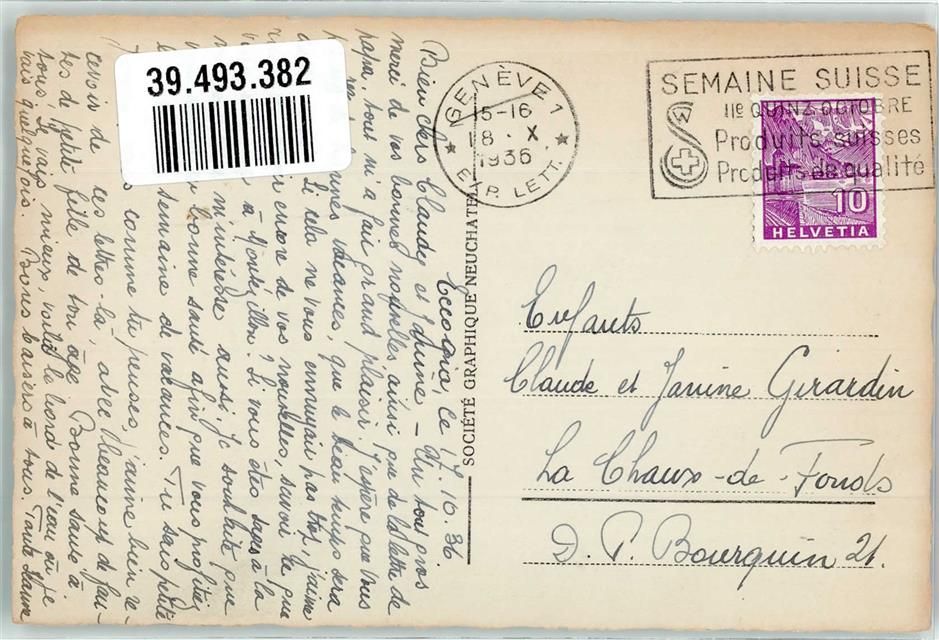 39.493.382
GENÈVE 1
15-16
18.X
1936
EXP. LETT.
SEMAINE SUISSE
IIe QUINZ. OCTOBRE
Produits suisses
Produits de qualité
10
HELVETIA
SOCIÉTÉ GRAPHIQUE NEUCHATEL
Enfants
Claude et Janine Girardin
La Chaux-de-Fonds
D. P. Bourquin 21.
Ecogia, le 17.10.36.
Bien chers Claudy et Janine – Un tout gros
merci de vos bonnes nouvelles, ainsi que de la lettre de
papa, tout m'a fait grand plaisir. J'espère que vous
vacances, que le beau temps sera
Si cela ne vous ennuyait pas trop, j'aime
encore de vos nouvelles, savoir ce que
à Montézillon? Si vous êtes sages à la
m'intéresse aussi. Je souhaite que
bonne santé afin que vous profitiez
semaine de vacances. Tu sais petite
comme tu penses, j'aime bien re-
cevoir de ces lettres-là, avec beaucoup de fau-
tes de petite fille de ton âge. Bonne santé à
tous, je vais mieux, voilà le bord de l'eau où je
vais quelquefois. Bons baisers à tous. Tante